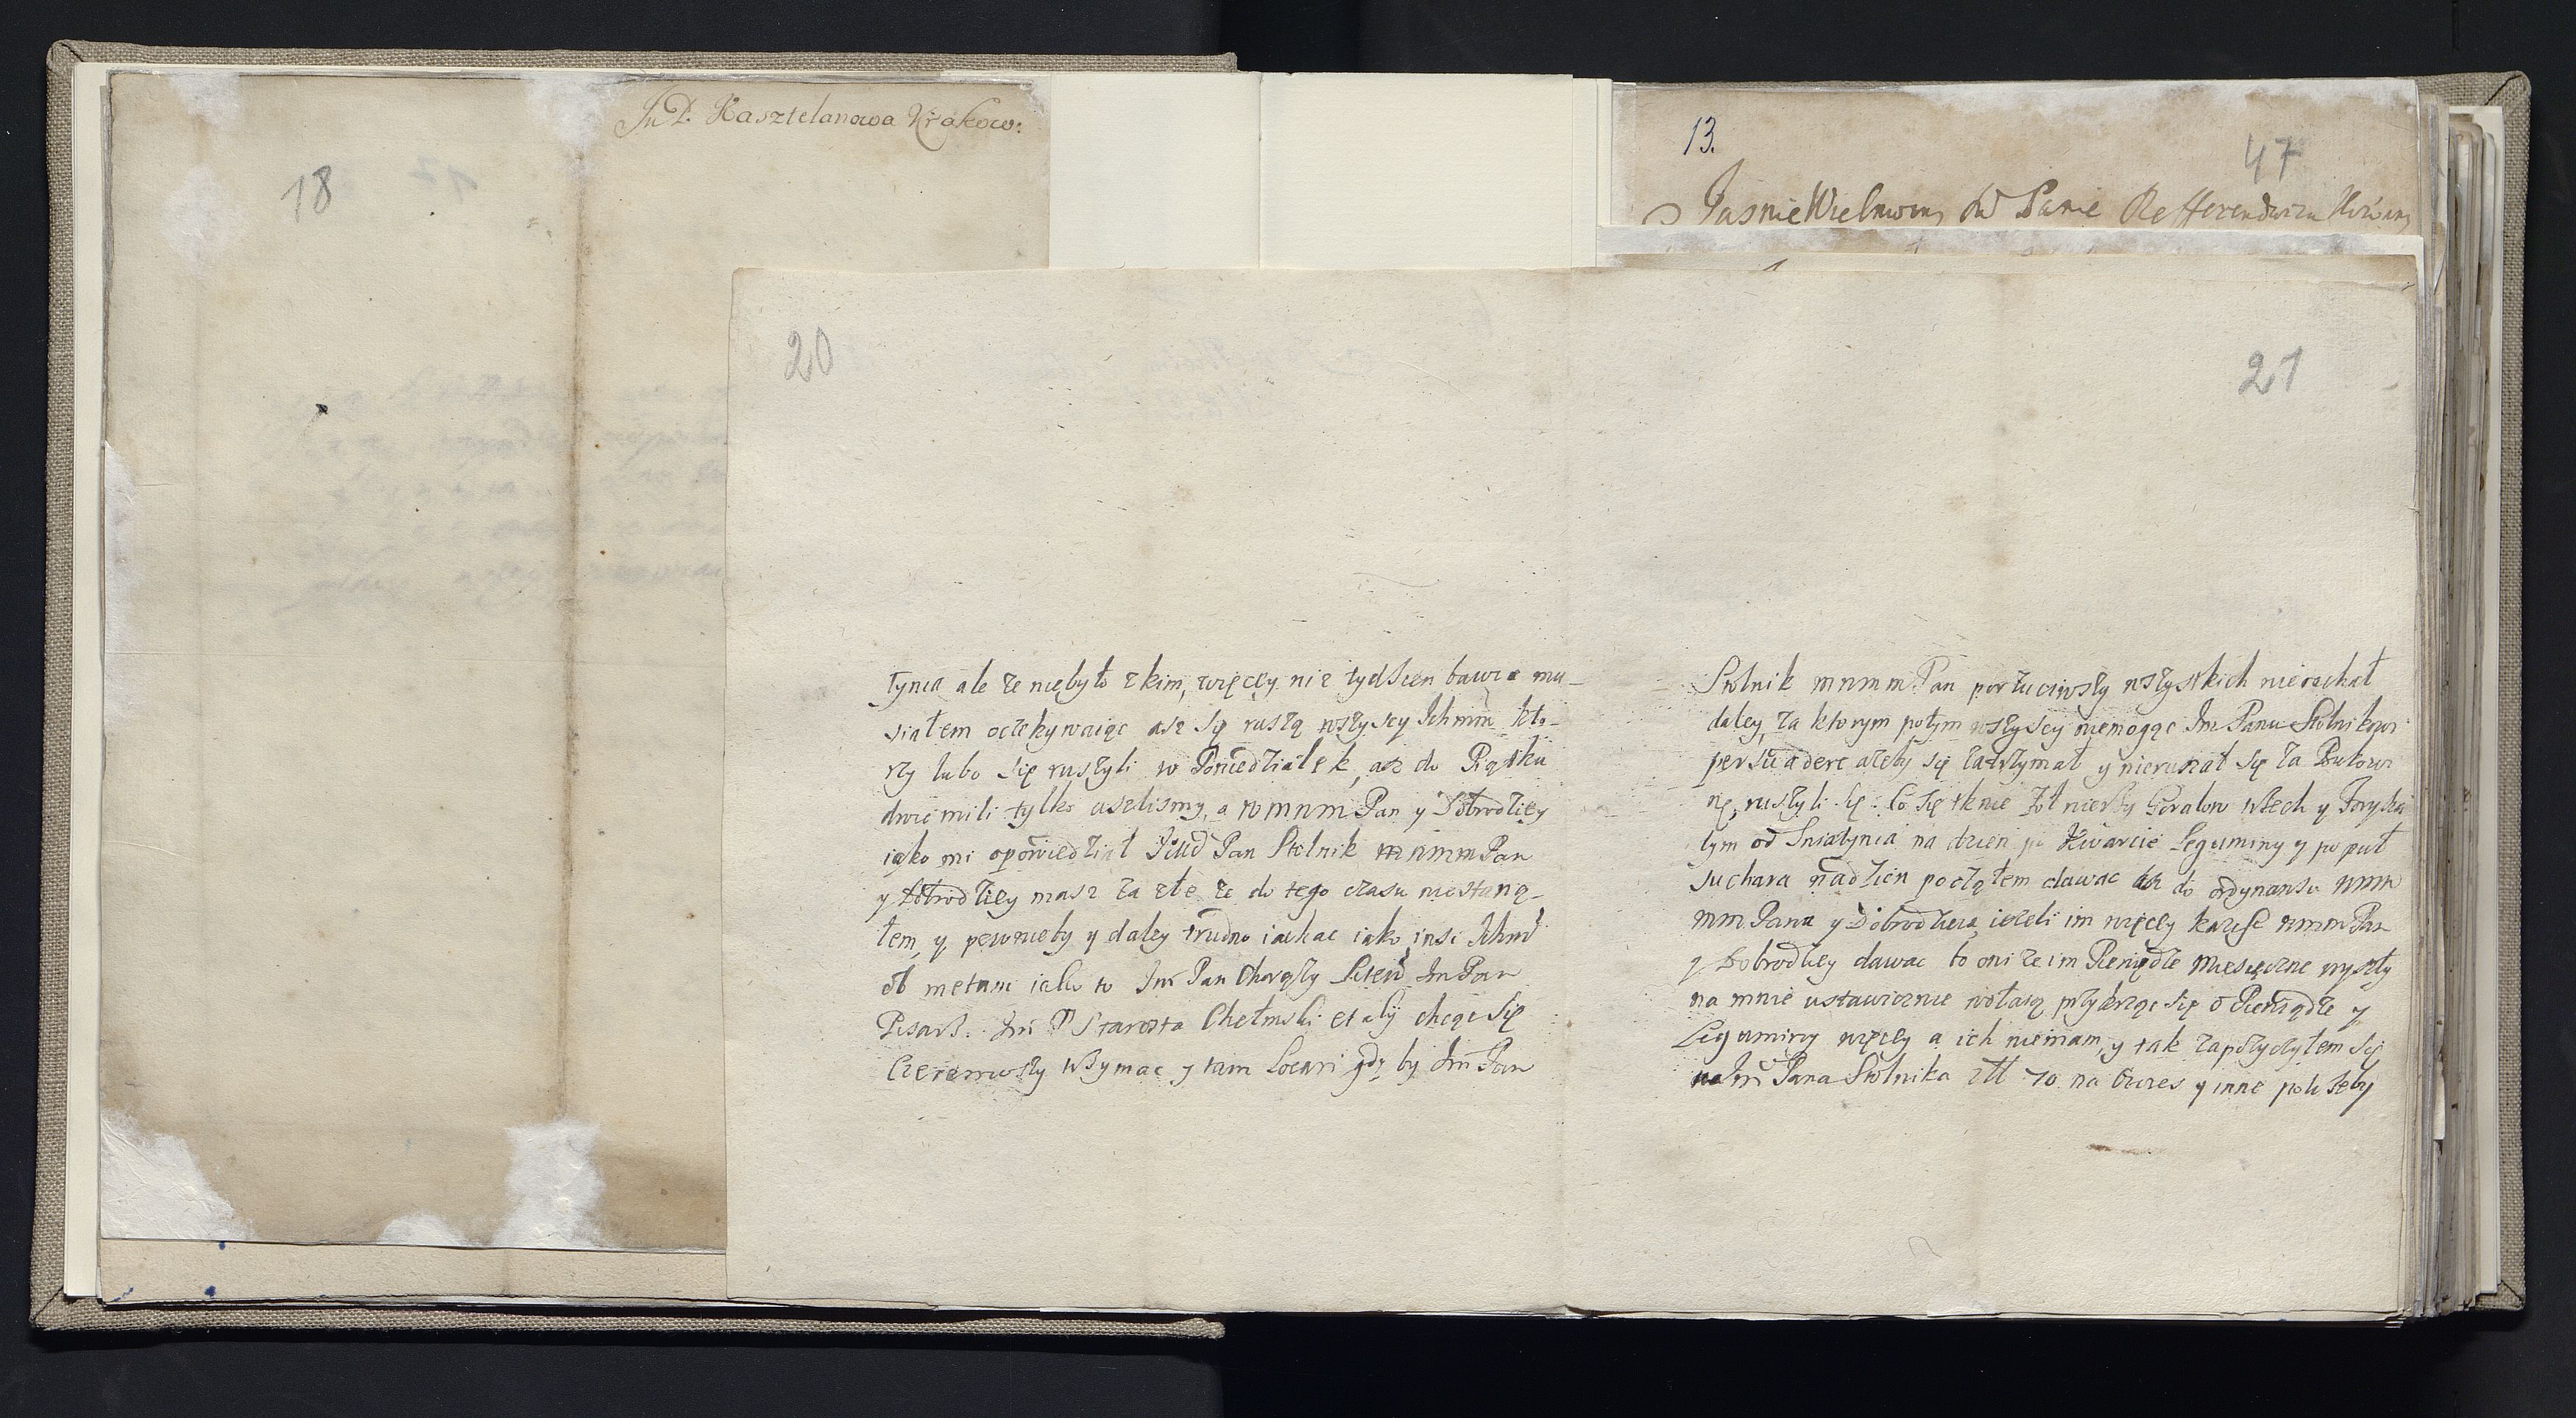 18
JwP. Kasztelanowa Krakow:
13.
47
Jasnie Wielmozny Panie Refferendarzu
20
tynia ale ze niebyło zkim, więcey niz tydzien bawic mu-
siałem oczekywaiąc asz się ruszą wszyscy Ichmm kto-
rzy lubo się ruszyli w Poniedziałek, asz do Piątku
dwie mili tylko uszlismy, a wmnm Pan y Dobrodziey
iako mi opowiedział Pan Stolnik mnmm Pan
y Dobrodziey masz za złe ze do tego czasu niestaną-
łem, y pewnieby y daley trudno iachac iako insi Ichm
ob metum iako to Jm Pan Chorąży Jm Pan
Pisarz. Jm P Starosta Chełmski et alij chcąc się
trzymac y tam Locari gdy by Jm Pan
21
Stolnik mnmm Pan porzuciwszy wszystkich niejachał
daley, za ktorym potym wszyscy niemogąc Jm Panu Stolnikowi
persuadere azeby się zatrzymał y nieruszał się za
nę, ruszyli się. Co się tknie Zołnierzy
tym od Sniatynia na dzien po Kwarcie Leguminy y po puł
suchara nadzien począłem dawac do ordynansu wmn
mm Pana y Dobrodzieia, iezeli im więcey karzesz wmm Pan
y Dobrodziey dawac bo oni ze im Pieniądze miesięczne wyszły
na mnie ustawicznie wołaią przykrząc się o Pieniądze y
Leguminy więcey a ich niemam, y tak zapożyczyłem się
na Jm Pana Stolnika złł 70 na Owies y inne potrzeby